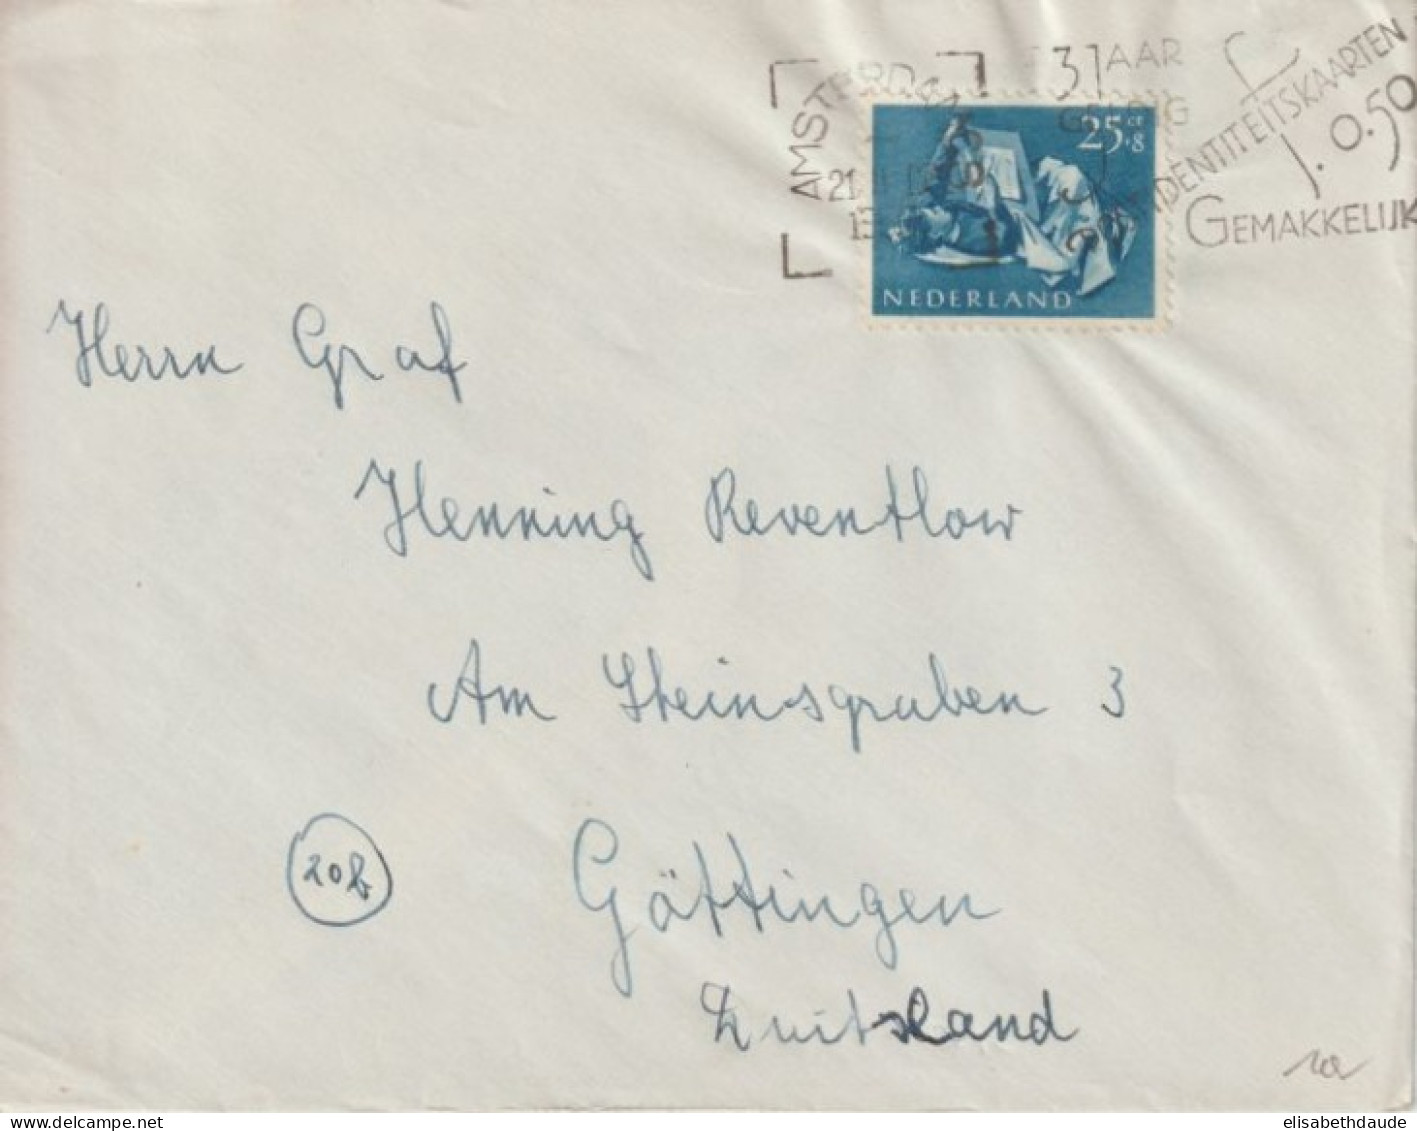 AMSTERDAM
21
3 JAAR
GELDIG
IDENTITEITSKAARTEN
f. 0.50
GEMAKKELIJK
25 ct
+8
NEDERLAND
Herrn Graf
Henning Reventlow
Am Steinsgraben 3
20b
Göttingen
Duitsland
elisabethdaude
www.delcampe.net